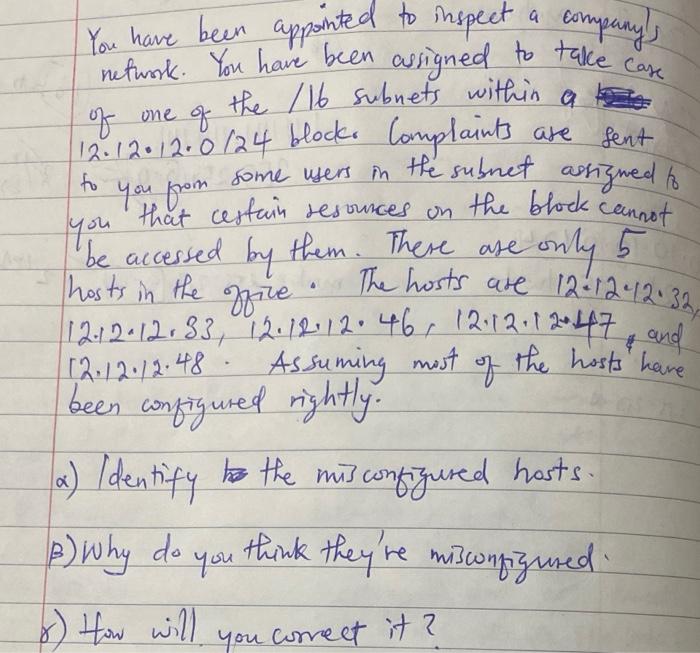 You have been appointed to inspect a company's
network. You have been assigned to take care
of one of the /16 subnets within a
12.12.12.0/24 block. Complaints are sent
to you from some users in the subnet assigned to
you that certain resources on the block cannot
be accessed by them. There are only 5
hosts in the office. The hosts are 12.12.12.32,
12.12.12.33, 12.12.12.46, 12.12.12.47, and
12.12.12.48. Assuming most of the hosts have
been configured rightly.
α) Identify the misconfigured hosts.
β) Why do you think they're misconfigured.
γ) How will you correct it?